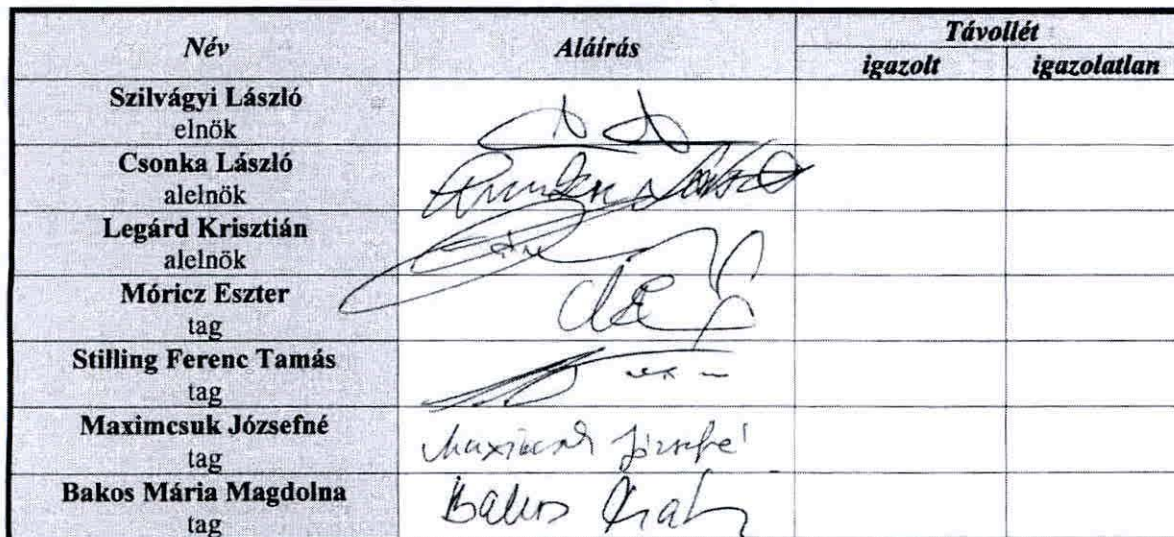 Név Aláírás Távollét
igazolt igazolatlan
Szilvágyi László
elnök
Csonka László
alelnök
Legárd Krisztián
alelnök
Móricz Eszter
tag
Stilling Ferenc Tamás
tag
Maximcsuk Józsefné
tag
Maximcsuk Józsefné
Bakos Mária Magdolna
tag
Bakos